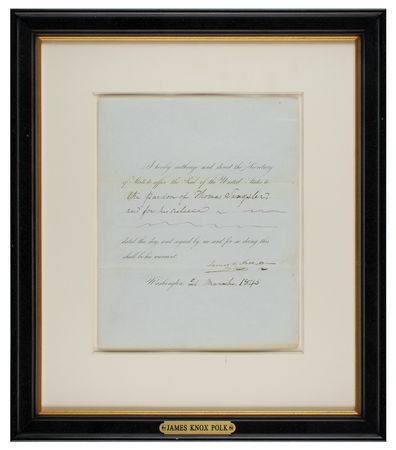 I hereby authorize and direct the Secretary
of State to affix the Seal of the United States to
the pardon of Thomas
and for his release
dated this day, and signed by me and for so doing this
shall be his warrant.
Washington, March
JAMES KNOX POLK